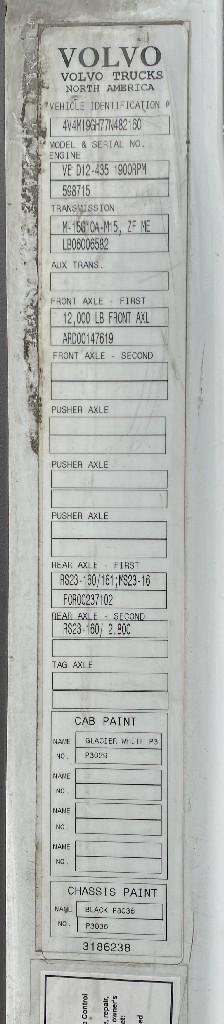 VOLVO
VOLVO TRUCKS
NORTH AMERICA
VEHICLE IDENTIFICATION #
4V4M19GH77N482160
MODEL & SERIAL NO.
ENGINE
VE D12-435 1900RPM
598715
TRANSMISSION
ZF ME
LB06006582
AUX TRANS.
FRONT AXLE - FIRST
12,000 LB FRONT AXL
ARD00147619
FRONT AXLE - SECOND
PUSHER AXLE
PUSHER AXLE
PUSHER AXLE
REAR AXLE - FIRST
RS23-160/161;MS23-16
FOR00237102
REAR AXLE - SECOND
RS23-160/ 2.80C
TAG AXLE
CAB PAINT
NAME GLACIER WHITE P3
NO. P3029
NAME
NO.
NAME
NO.
NAME
NO.
CHASSIS PAINT
NAME BLACK P3036
NO. P3036
3186238
Control
, repair,
owner's